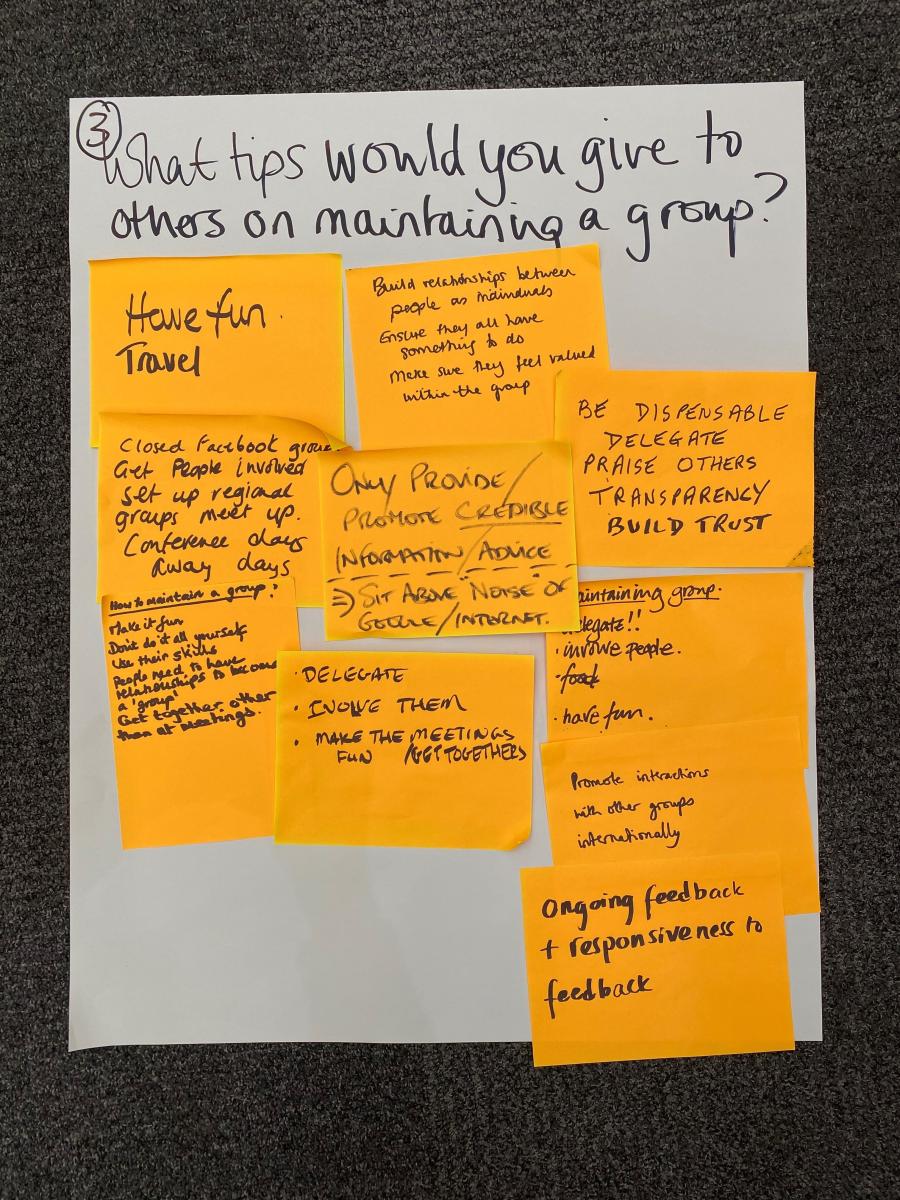 3
What tips would you give to
others on maintaining a group?
Have fun.
Travel
Build relationships between
people as individuals
Ensure they all have
something to do
Make sure they feel valued
within the group
BE DISPENSABLE
DELEGATE
PRAISE OTHERS
TRANSPARENCY
BUILD TRUST
Closed Facebook group
Get People involved
set up regional
groups meet up.
Conference days
Away days
ONLY PROVIDE/
PROMOTE CREDIBLE
INFORMATION/ADVICE
⇒ SIT ABOVE "NOISE" OF
GOOGLE/INTERNET.
How to maintain a group?
Make it fun
Don't do it all yourself
Use their skills
People need to have
relationships to become
a 'group'
Get together other
than at meetings.
· DELEGATE
· INOLVE THEM
· MAKE THE MEETINGS
FUN /GET TOGETHERS
aintaining group.
elegate!!
· involve people.
· food
· have fun.
Promote interactions
with other groups
internationally
Ongoing feedback
+ responsiveness to
feedback